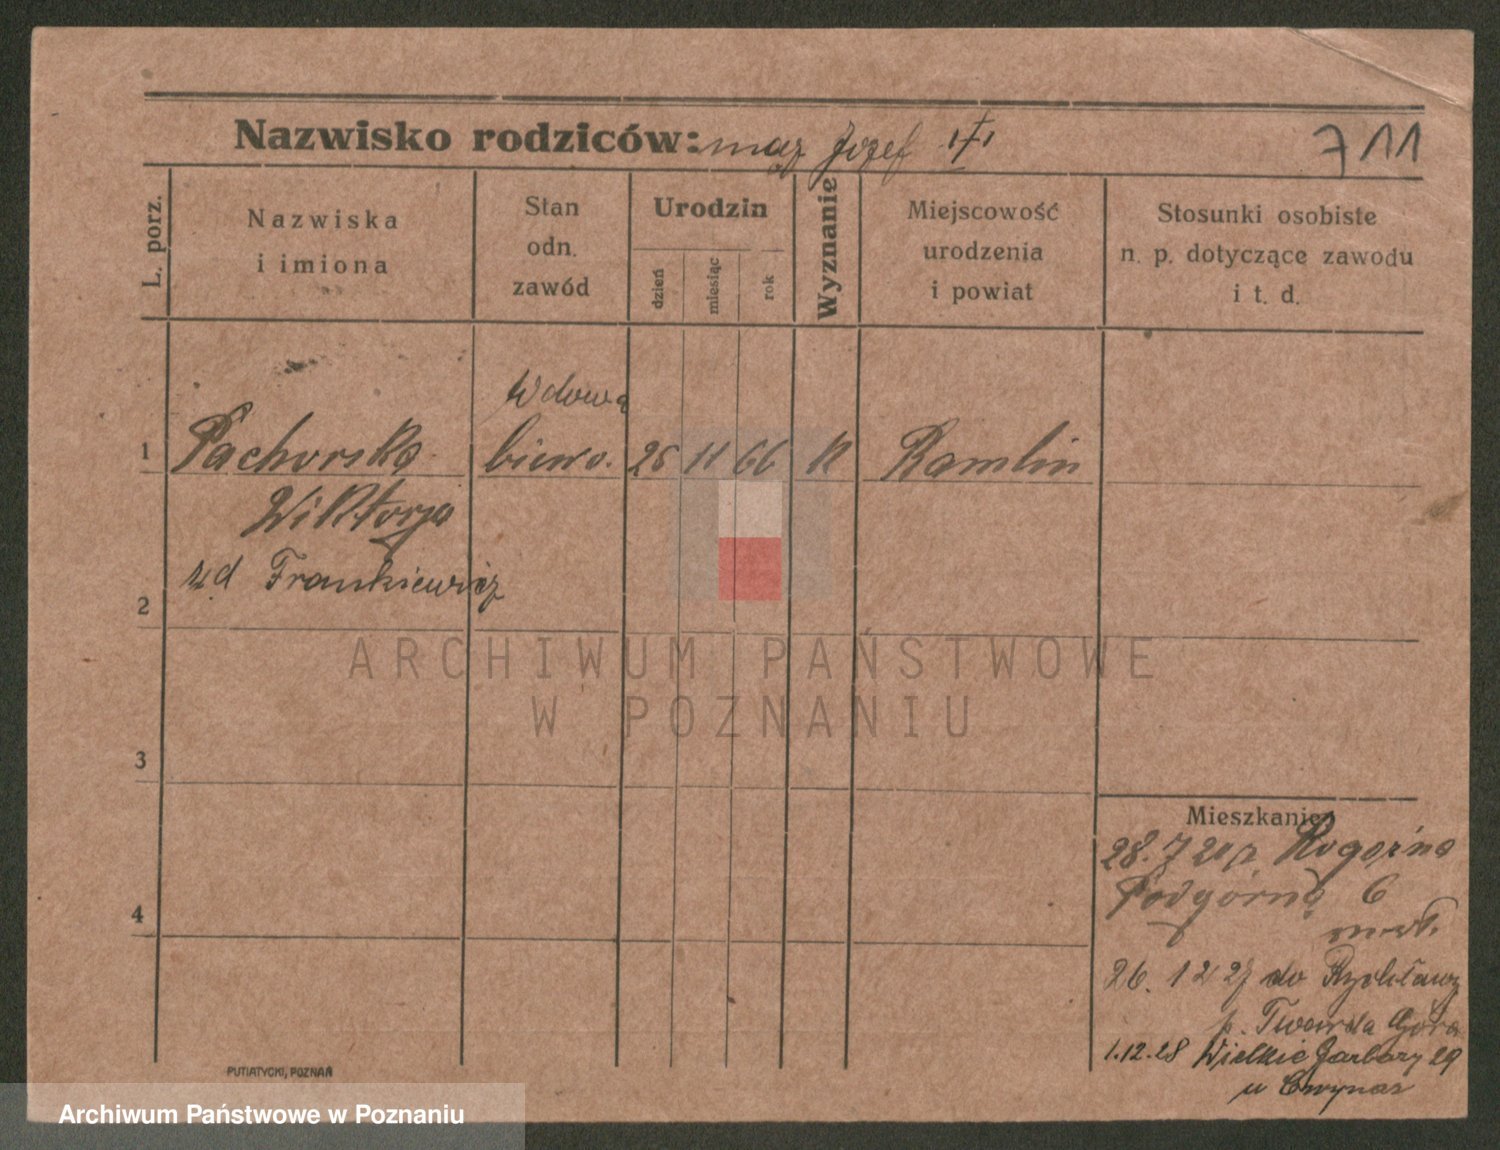 Nazwisko rodziców: mąż Józef
711
L. porz.
Nazwiska
i imiona
Stan
odn.
zawód
Urodzin
dzień
miesiąc
rok
Wyznanie
Miejscowość
urodzenia
i powiat
Stosunki osobiste
n. p. dotyczące zawodu
i t. d.
wdowa
1 Pachorska 26 11 66 K Ramlin
Wiktorja
Frankiewicz
2
3
4
Mieszkanie
28. 7
Podgórna 6
26. 12 27 do
p. Twarda Góra
1.12.28 Wielkie Garbary 29
u
PUTIATYCKI, POZNAŃ
ARCHIWUM PAŃSTWOWE
W POZNANIU
Archiwum Państwowe w Poznaniu